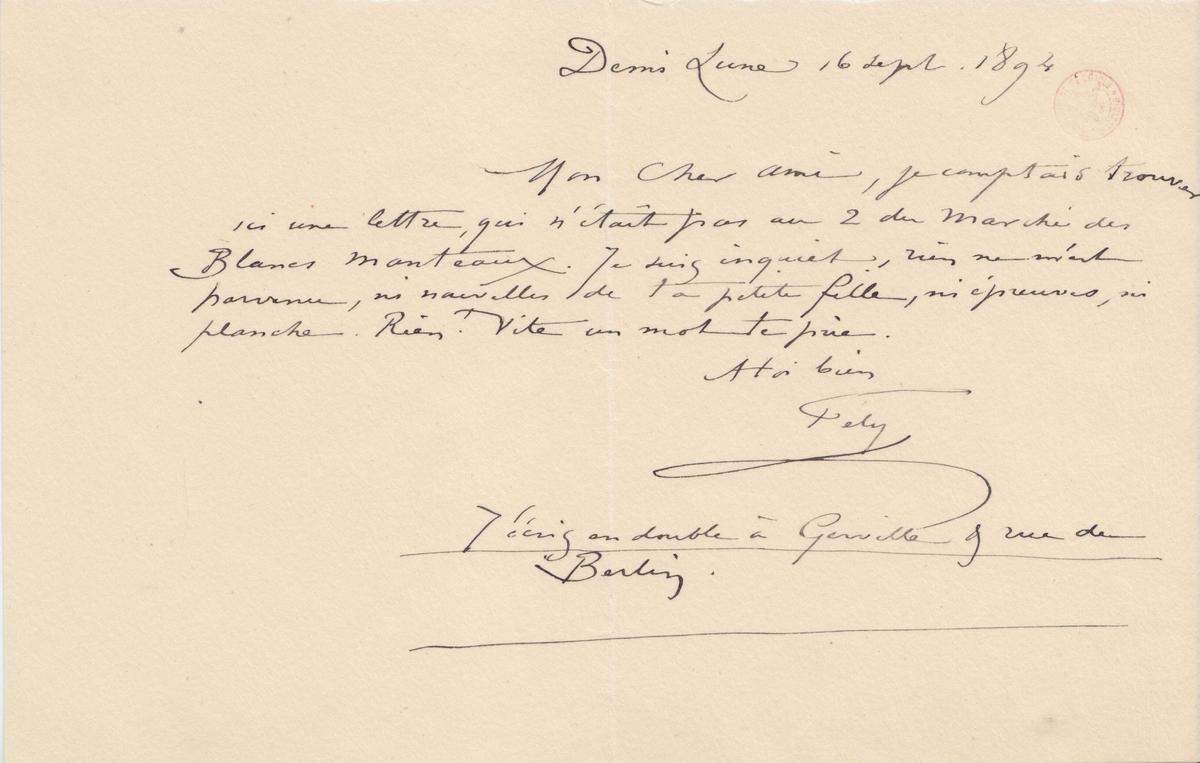 Demi Lune 16 sept. 1894
Mon Cher ami, je comptais trouver
ici une lettre, qui n'était pas au 2 du Marché des
Blancs Manteaux. Je suis inquiet, rien ne m'est
parvenu, ni nouvelles de ta petite fille, ni épreuves, ni
planche. Rien. Vite un mot te prie.
A toi bien
Fély
J'écris en double à Gerville 8 rue de
Berlin.